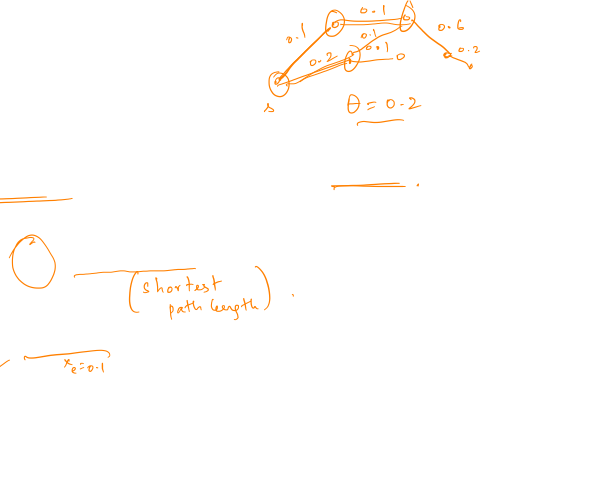 0.1
0.1
0.6
0.1
0.1
0.2
0.2
s
θ = 0.2
2
(shortest
path length)
x_e = 0.1